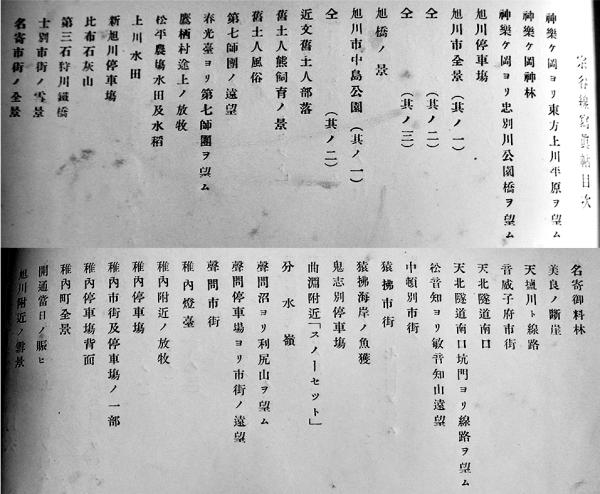 宗谷線寫眞帖目次
神樂ケ岡ヨリ東方上川平原ヲ望ム
神樂ケ岡神林
神樂ケ岡ヨリ忠別川公園橋ヲ望ム
旭川停車塲
旭川市全景（其ノ一）
仝（其ノ二）
仝（其ノ三）
旭橋ノ景
旭川市中島公園（其ノ一）
仝（其ノ二）
近文舊土人部落
舊土人熊飼育ノ景
舊土人風俗
第七師團ノ遠望
春光臺ヨリ第七師團ヲ望ム
鷹栖村途上ノ放牧
松平農塲水田及水稻
上川水田
新旭川停車塲
比布石灰山
第三石狩川鐵橋
士別市街ノ雪景
名寄市街ノ全景
名寄御料林
美良ノ斷崖
天鹽川ト線路
音威子府市街
天北隧道南口
天北隧道南口坑門ヨリ線路ヲ望ム
松音知ヨリ敏音知山遠望
中頓別市街
猿拂市街
猿拂海岸ノ魚獲
鬼志別停車塲
曲淵附近「スノーセツト」
分水嶺
聲問沼ヨリ利尻山ヲ望ム
聲問停車塲ヨリ市街ノ遠望
聲問市街
稚內燈臺
稚內附近ノ放牧
稚內停車塲
稚內市街及停車塲ノ一部
稚內停車塲背面
稚內町全景
開通當日ノ賑ヒ
旭川附近ノ雪景